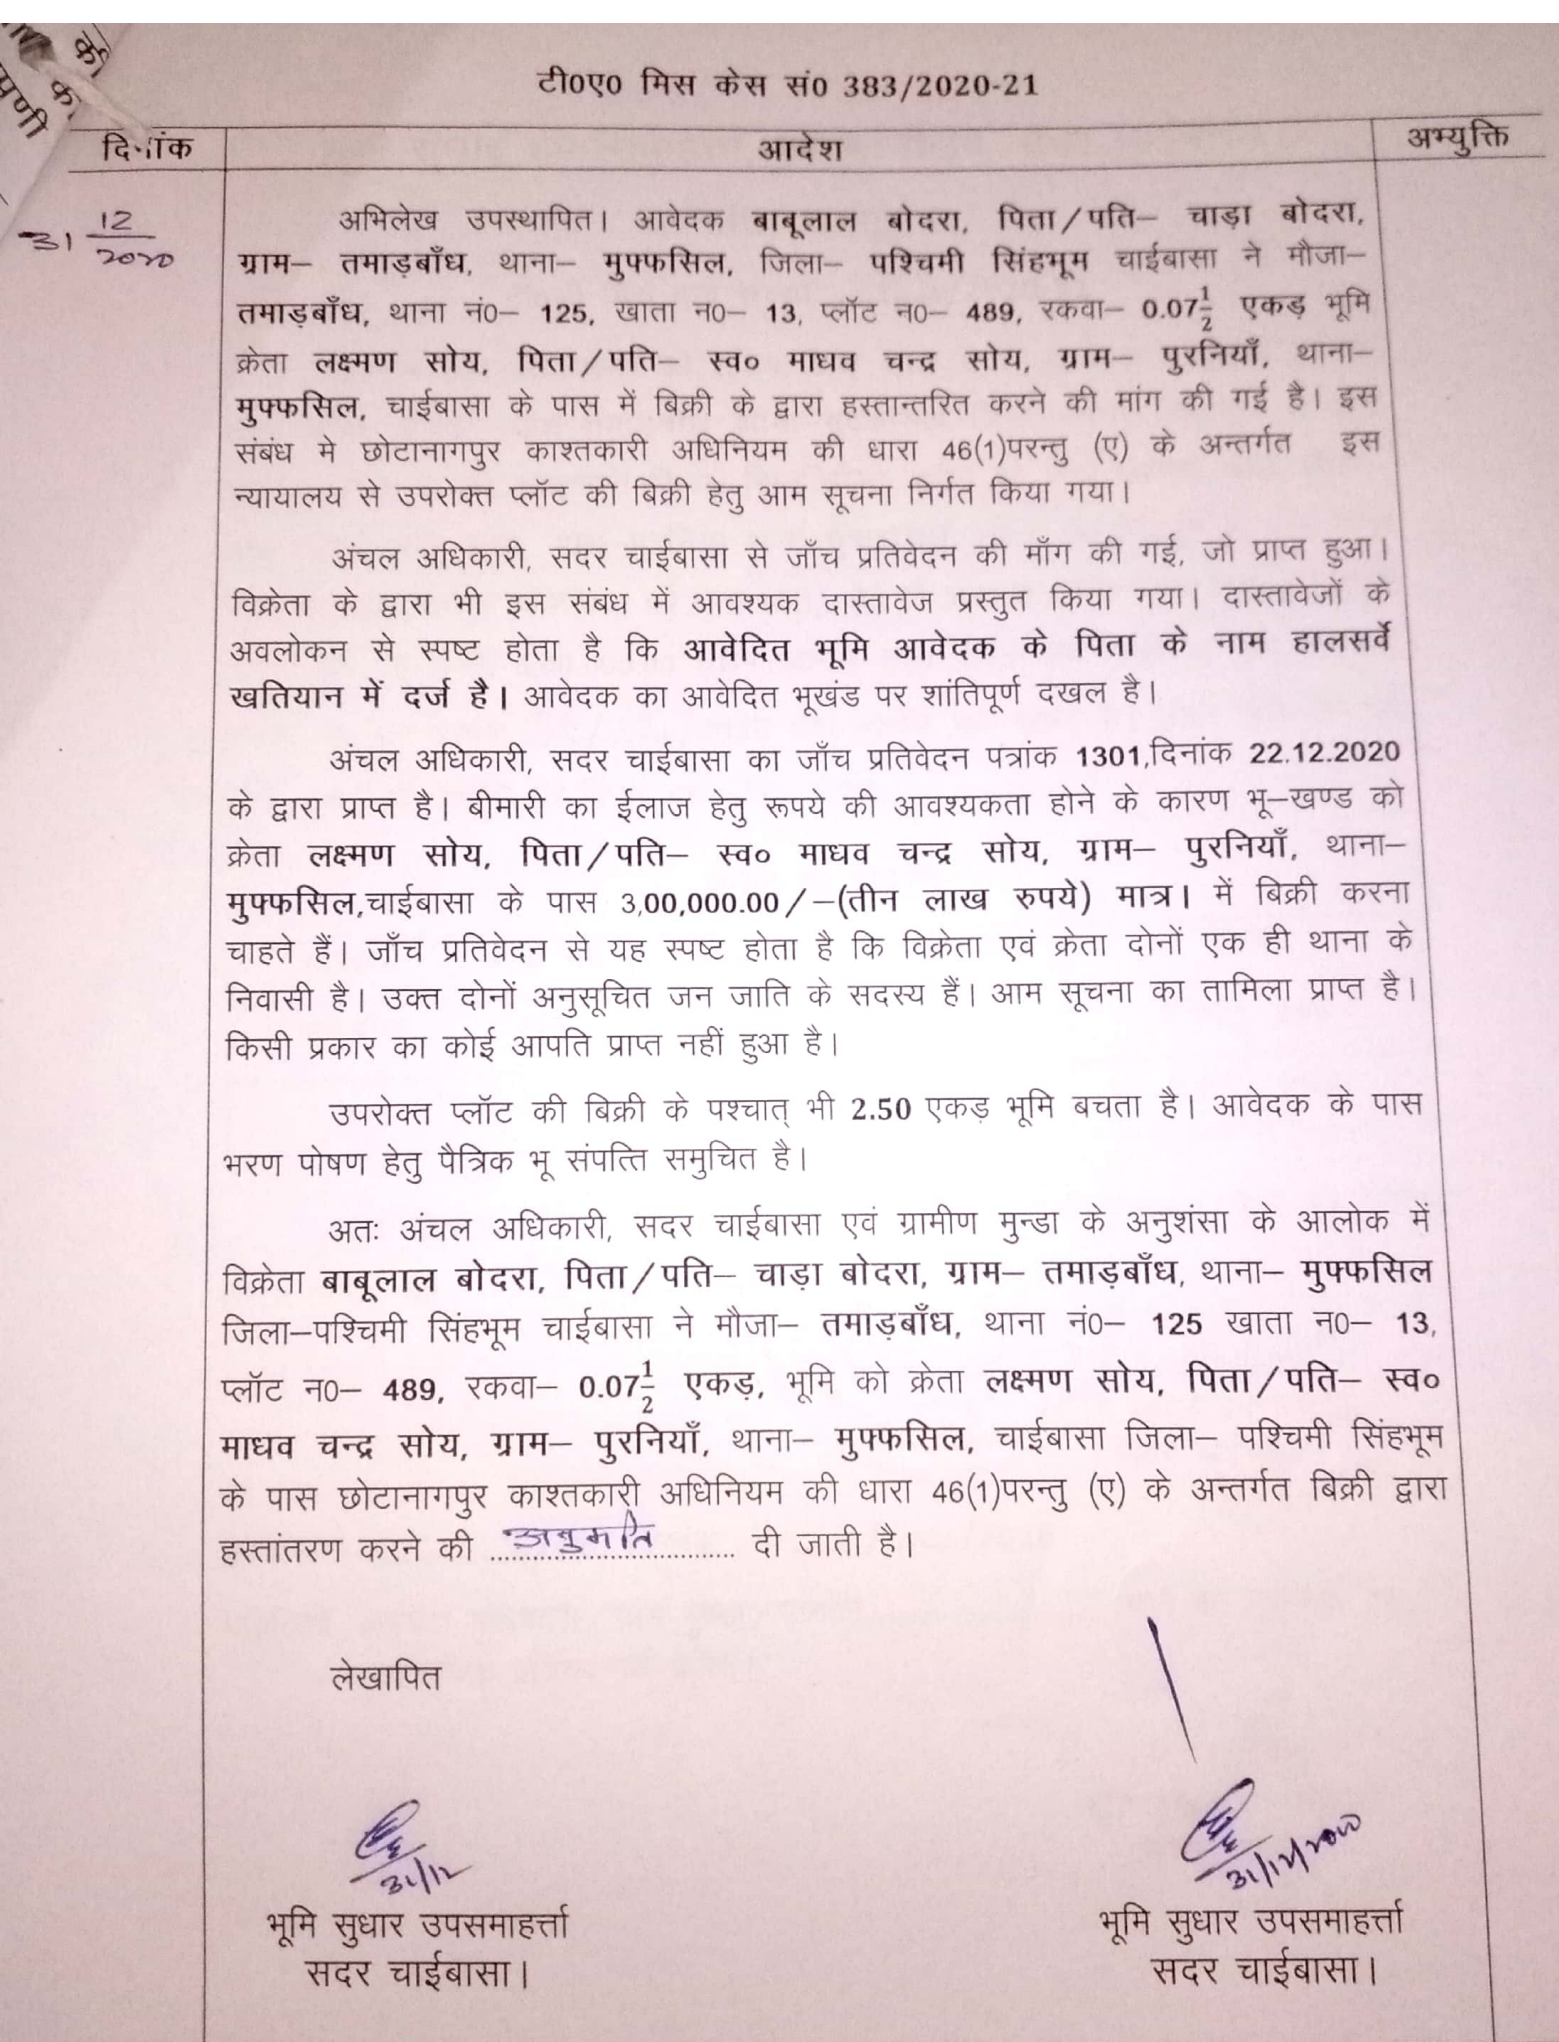 की
का
पणी
टी0ए0 मिस केस सं0 383/2020-21
दिनांक आदेश अभ्युक्ति
31 12/2020
अभिलेख उपस्थापित। आवेदक बाबूलाल बोदरा, पिता/पति– चाड़ा बोदरा,
ग्राम– तमाड़बाँध, थाना– मुफ्फसिल, जिला– पश्चिमी सिंहभूम चाईबासा ने मौजा–
तमाड़बाँध, थाना नं0– 125, खाता न0– 13, प्लॉट न0– 489, रकवा– 0.07½ एकड़ भूमि
क्रेता लक्ष्मण सोय, पिता/पति– स्व० माधव चन्द्र सोय, ग्राम– पुरनियाँ, थाना–
मुफ्फसिल, चाईबासा के पास में बिक्री के द्वारा हस्तान्तरित करने की मांग की गई है। इस
संबंध मे छोटानागपुर काश्तकारी अधिनियम की धारा 46(1)परन्तु (ए) के अन्तर्गत इस
न्यायालय से उपरोक्त प्लॉट की बिक्री हेतु आम सूचना निर्गत किया गया।
अंचल अधिकारी, सदर चाईबासा से जाँच प्रतिवेदन की माँग की गई, जो प्राप्त हुआ।
विक्रेता के द्वारा भी इस संबंध में आवश्यक दास्तावेज प्रस्तुत किया गया। दास्तावेजों के
अवलोकन से स्पष्ट होता है कि आवेदित भूमि आवेदक के पिता के नाम हालसर्वे
खतियान में दर्ज है। आवेदक का आवेदित भूखंड पर शांतिपूर्ण दखल है।
अंचल अधिकारी, सदर चाईबासा का जाँच प्रतिवेदन पत्रांक 1301,दिनांक 22.12.2020
के द्वारा प्राप्त है। बीमारी का ईलाज हेतु रूपये की आवश्यकता होने के कारण भू–खण्ड को
क्रेता लक्ष्मण सोय, पिता/पति– स्व० माधव चन्द्र सोय, ग्राम– पुरनियाँ, थाना–
मुफ्फसिल,चाईबासा के पास 3,00,000.00/–(तीन लाख रुपये) मात्र। में बिक्री करना
चाहते हैं। जाँच प्रतिवेदन से यह स्पष्ट होता है कि विक्रेता एवं क्रेता दोनों एक ही थाना के
निवासी है। उक्त दोनों अनुसूचित जन जाति के सदस्य हैं। आम सूचना का तामिला प्राप्त है।
किसी प्रकार का कोई आपति प्राप्त नहीं हुआ है।
उपरोक्त प्लॉट की बिक्री के पश्चात् भी 2.50 एकड़ भूमि बचता है। आवेदक के पास
भरण पोषण हेतु पैत्रिक भू संपत्ति समुचित है।
अतः अंचल अधिकारी, सदर चाईबासा एवं ग्रामीण मुन्डा के अनुशंसा के आलोक में
विक्रेता बाबूलाल बोदरा, पिता/पति– चाड़ा बोदरा, ग्राम– तमाड़बाँध, थाना– मुफ्फसिल
जिला–पश्चिमी सिंहभूम चाईबासा ने मौजा– तमाड़बाँध, थाना नं0– 125 खाता न0– 13,
प्लॉट न0– 489, रकवा– 0.07½ एकड़, भूमि को क्रेता लक्ष्मण सोय, पिता/पति– स्व०
माधव चन्द्र सोय, ग्राम– पुरनियाँ, थाना– मुफ्फसिल, चाईबासा जिला– पश्चिमी सिंहभूम
के पास छोटानागपुर काश्तकारी अधिनियम की धारा 46(1)परन्तु (ए) के अन्तर्गत बिक्री द्वारा
हस्तांतरण करने की अनुमति दी जाती है।
लेखापित
31/12 31/12/2020
भूमि सुधार उपसमाहर्त्ता भूमि सुधार उपसमाहर्त्ता
सदर चाईबासा। सदर चाईबासा।